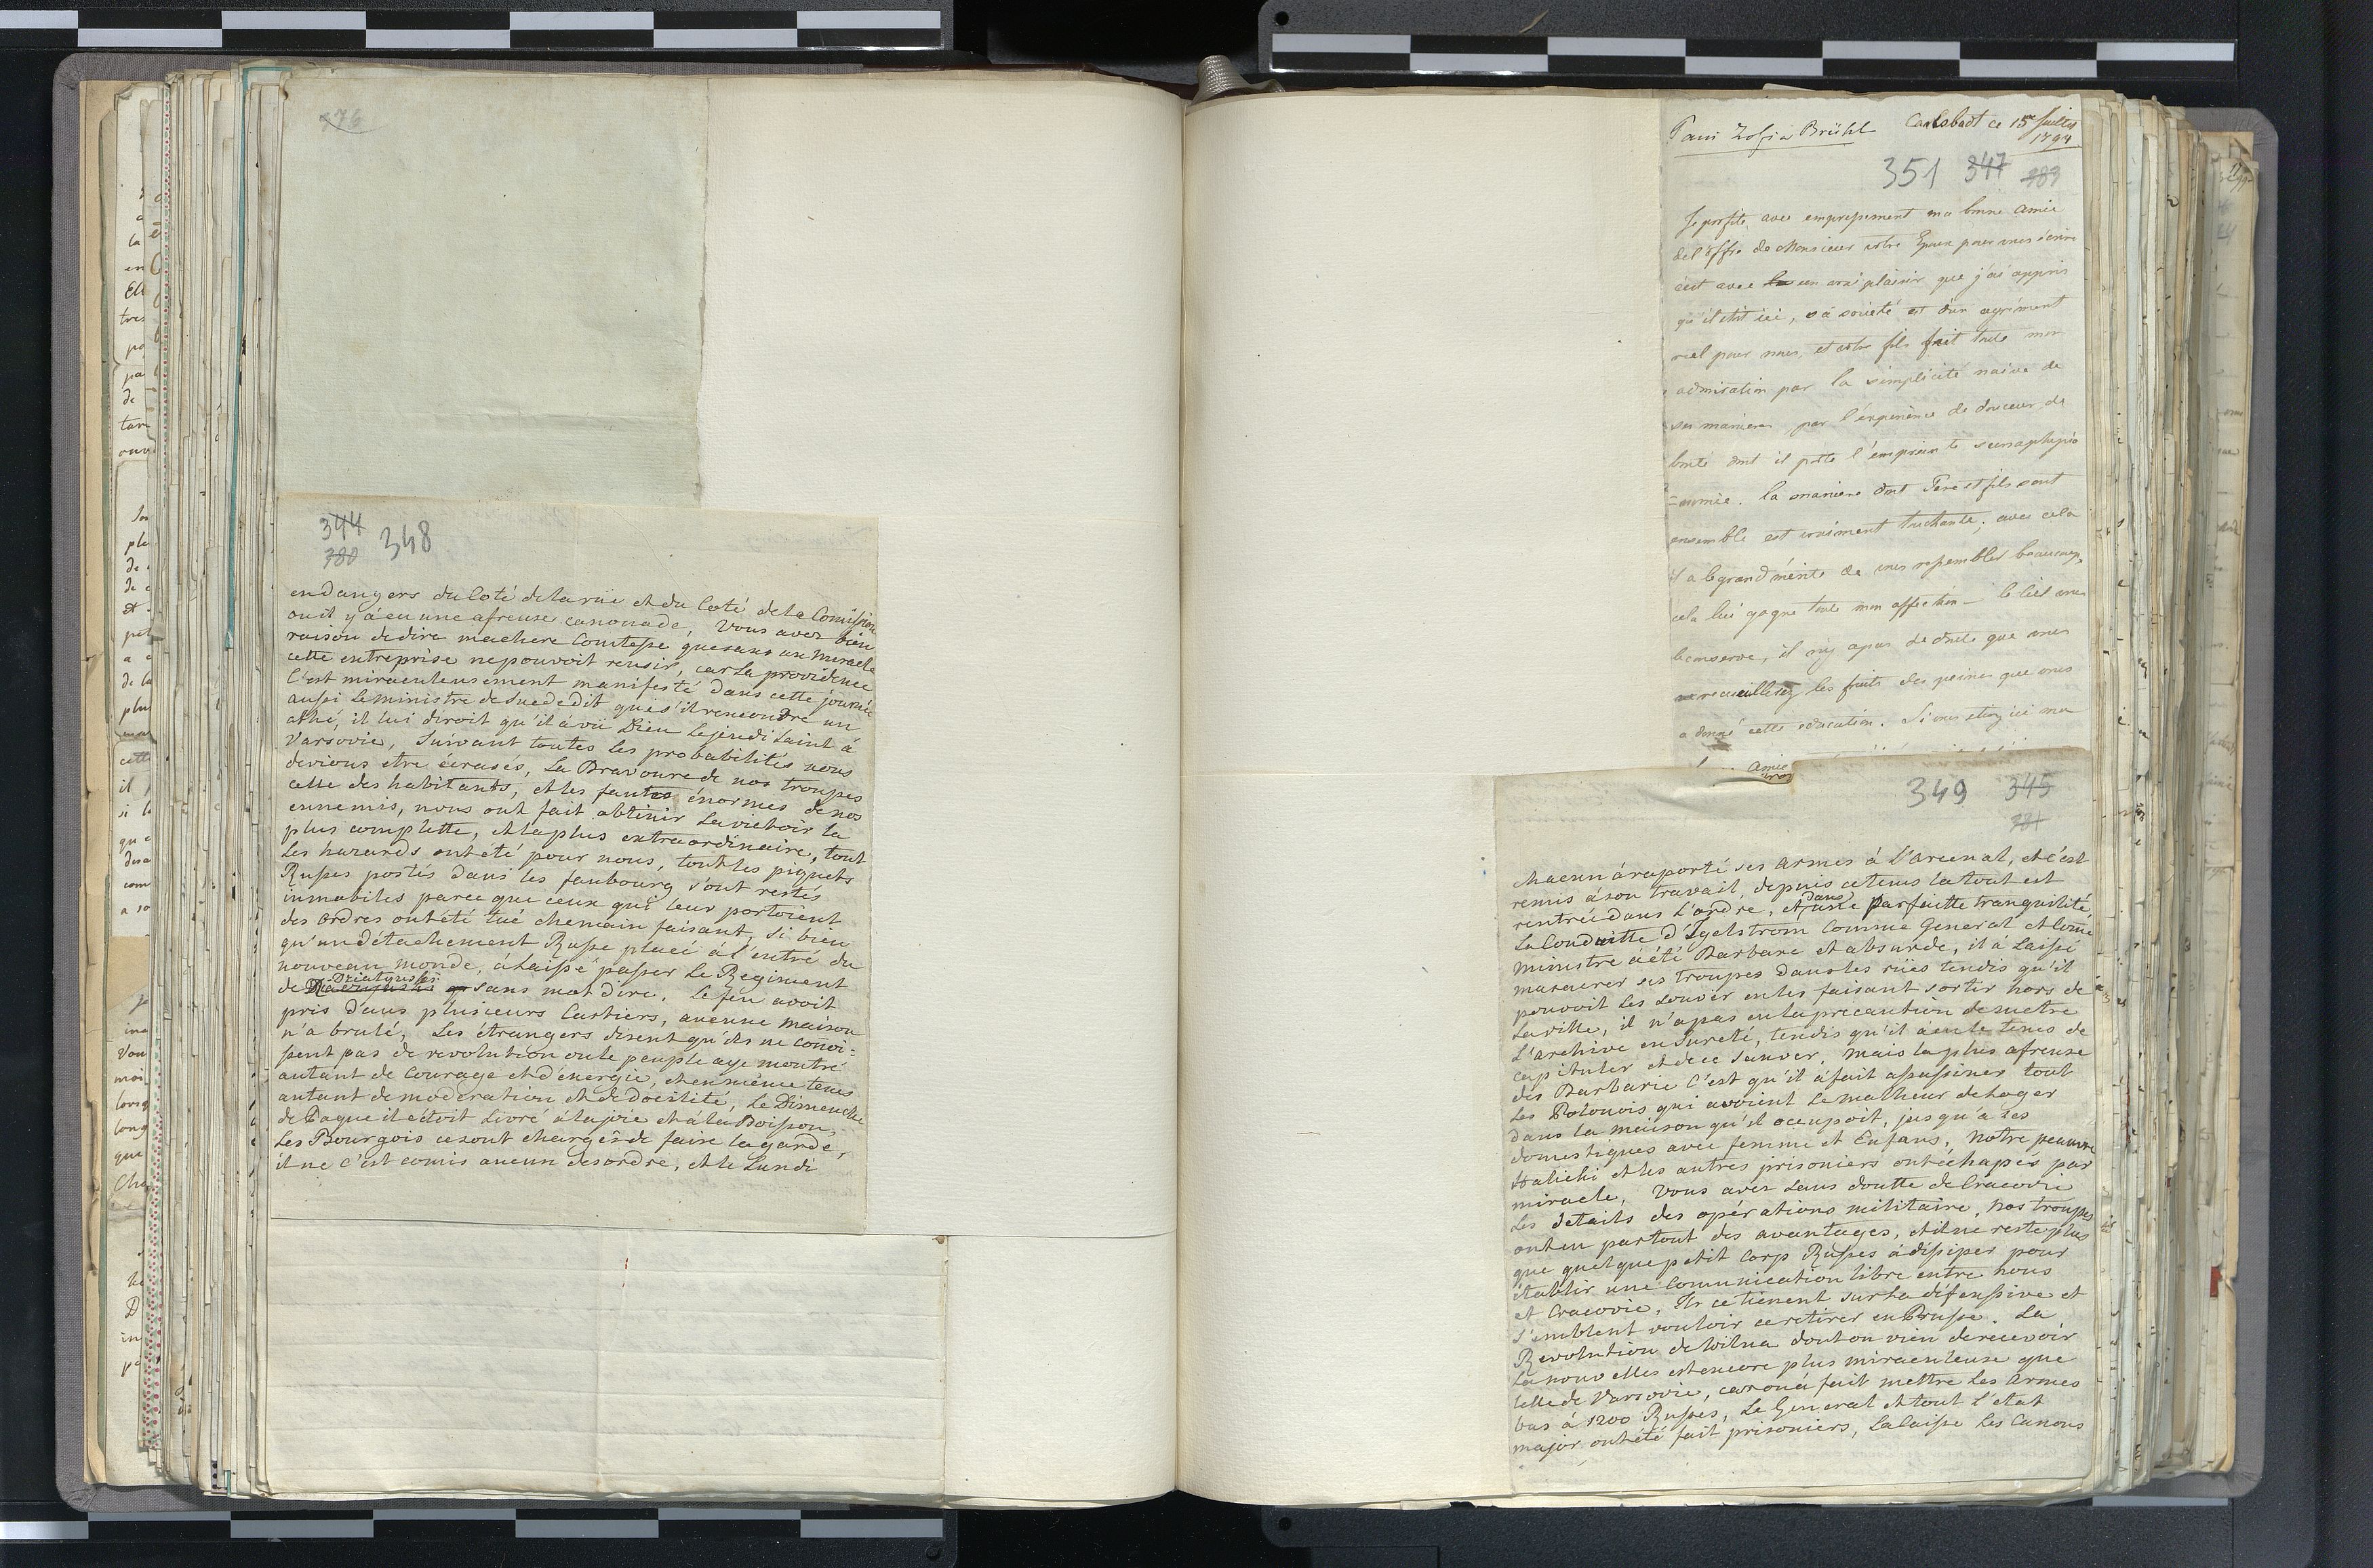 376
344 348
380
en dangers du Coté de la rüe et du Coté de la Comission
ou il y'á eu une afreuse canonade, Vous avez bien
raison de dire machere Comtesse que sans un Miracle
cette entreprise ne pouvoit reusir, car La providence
C'est miraculeusement manifesté dans cette journée
aussi Le ministre de Suede dit que s'il rencondre un
athé, il lui diroit qu'il á vü Dieu Le jeudi Saint á
Varsovie, Suivant toutes les probabilités nous
devions etre écrasés, La Bravoure de nos troupes
celle des habitants, et les fautes énormes de nos
ennemis, nous ont fait obtinir La victoir la
plus complette, et la plus extraordinaire, tout
Les hazards ont eté pour nous, tout les piquets
Russes postés dans les faubourg s'ont restés
immobiles parce que ceux qui leur portoient
des ordres ont été tué chemain faisant, Si bien
qu'un détachement Russe placé á l'entré du
nouveau monde, á Laissé passer Le Regiment
de Dzialynski sans mot dire. Le feu avoit
pris dans plusieurs Cartiers, aucune maison
n'a brulé, Les étrangers disent qu'ils ne connoi=
ssent pas de revolution ou le peuple aye montré
autant de Courage et d'énergie, et en même tems
autant de moderation et de docilité, Le Dimenche
de Paque il étoit Livré á la joie et á la Boisson,
Les Bourgois ce sont chargés de faire la garde,
il ne C'est comis aucun desordre, et le Lundi
Pani Zofia Brühl Carlsbadt ce 15 Juillet
1794
351 347 383
Je profite avec empressement ma bonne Amie
de l'offre de Monsieur votre Epoux pour vous écrire
c'est avec un vrai plaisir que j'ai appris
qu'il étoit ici, sa société est d'un agrément
réel pour nous, et votre fils fait toute mon
admiration par la simplicité naive de
ses manieres par l'expérience de douceur de
bonté dont il porte l'empreinte sur sa physio
=nomie. la maniere dont Pere et fils sont
ensemble est vraiment touchante; avec cela
il a le grand mérite de vous ressembler beaucoup,
cela lui gagne toute mon affection — le Ciel vous
le conserve, il n'y a pas de doute que vous
recueilliez les fruits des peines que vous
a donné cette education. Si vous etiez ici ma
Amie
349 345
381
chacun á raporté ses Armes á L'Arcenal, et c'est
remis á son travail, depuis ce tems la tout est
rentrée dans L'ordre, et dans une parfaitte tranquilité,
La Conduitte d'Igelstrom Comme General et Come
ministre á été Barbare et absurde, il á Laissé
masacrer ses troupes dans les rües tendis qu'il
pouvoit Les sauver en les faisant sortir hors de
La ville, il n'a pas eu la precaution de metre
L'archive en Sureté, tendis qu'il á eu le tems de
capituler et de ce sauver. Mais la plus afreuse
des Barbarie C'est qu'il á fait assassiner tout
Les Polonois qui avoient Le malheur de Loger
dans la maison qu'il occupoit, jusqu'a ses
domestiques avec femme et Enfans, Notre peauvre
Halicki et les autres prisoniers ont échapés par
miracle, Vous avez sans doutte de Cracovie
Les details des opérations militaire, nos troupes
ont eu partout des avantages, et il ne reste plus
que quelque petit Corp Russes á dissiper pour
établir une Comunication libre entre nous
et Cracovie, Ils ce tienent sur la défensive et
s'emblent vouloir ce retirer en Prusse. La
Revolution de Wilna dont on vien de recevoir
La nouvelles est encore plus miraculeuse que
Celle de Varsovie, car on á fait mettre Les Armes
bas á 1200 Russes, Le General et tout L'etat
major ont été fait prisoniers, La Caisse Les Canons